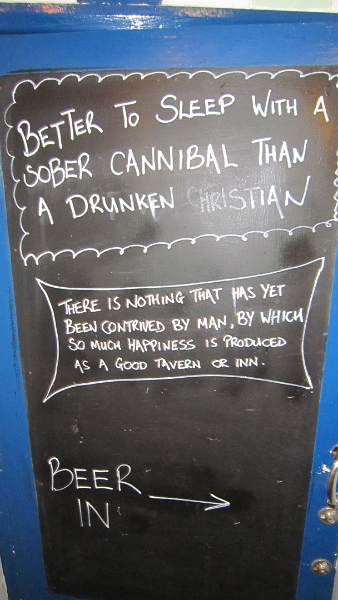 BETTER TO SLEEP WITH A
SOBER CANNIBAL THAN
A DRUNKEN CHRISTIAN
THERE IS NOTHING THAT HAS YET
BEEN CONTRIVED BY MAN, BY WHICH
SO MUCH HAPPINESS IS PRODUCED
AS A GOOD TAVERN OR INN.
BEER
IN